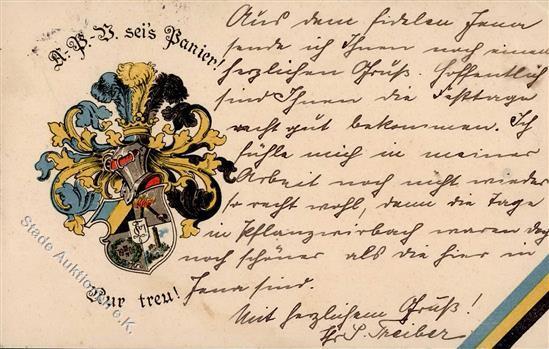 A.-P. V. sei's Panier!
Nur treu!
Aus dem fidelen Jena
sende ich Ihnen noch einen
herzlichen Gruß. Hoffentlich
sind Ihnen die Festtage
recht gut bekommen. Ich
fühle mich in meiner
Arbeit noch nicht wieder
so recht wohl, denn die Tage
in Pflanzwirbach waren doch
noch schöner als die hier in
Jena sind.
Mit herzlichem Gruß!
S. Treiber
Stade Auktionen o.K.